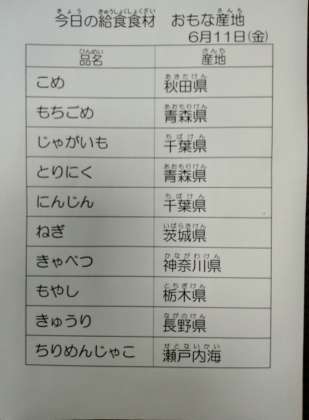 今日の給食食材 おもな産地
6月11日(金)
品名 産地
こめ 秋田県
もちごめ 青森県
じゃがいも 千葉県
とりにく 青森県
にんじん 千葉県
ねぎ 茨城県
きゃべつ 神奈川県
もやし 栃木県
きゅうり 長野県
ちりめんじゃこ 瀬戸内海